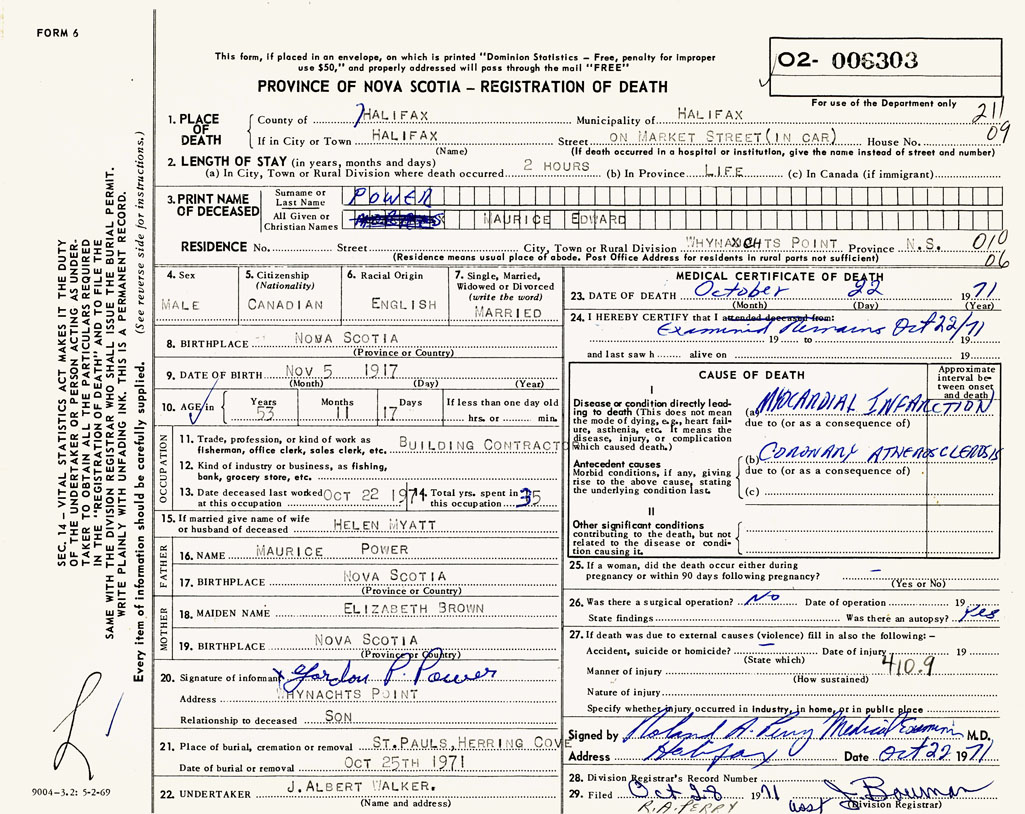 FORM 6
This form, if placed in an envelope, on which is printed "Dominion Statistics – Free, penalty for improper
use $50," and properly addressed will pass through the mail "FREE"
02- 006303
For use of the Department only
PROVINCE OF NOVA SCOTIA – REGISTRATION OF DEATH
211
09
1. PLACE OF DEATH
County of HALIFAX Municipality of HALIFAX
If in City or Town HALIFAX Street ON MARKET STREET (IN CAR) House No.
(Name) (If death occurred in a hospital or institution, give the name instead of street and number)
2. LENGTH OF STAY (in years, months and days)
(a) In City, Town or Rural Division where death occurred 2 HOURS (b) In Province LIFE (c) In Canada (if immigrant)
3. PRINT NAME OF DECEASED
Surname or Last Name POWER
All Given or Christian Names MAURICE EDWARD
RESIDENCE No. Street City, Town or Rural Division WHYNACHTS POINT Province N.S. 010
(Residence means usual place of abode. Post Office Address for residents in rural parts not sufficient) 06
4. Sex
MALE
5. Citizenship
(Nationality)
CANADIAN
6. Racial Origin
ENGLISH
7. Single, Married,
Widowed or Divorced
(write the word)
MARRIED
8. BIRTHPLACE NOVA SCOTIA
(Province or Country)
9. DATE OF BIRTH NOV 5 1917
(Month) (Day) (Year)
10. AGE in
Years Months Days If less than one day old
53 11 17 hrs. or min.
OCCUPATION
11. Trade, profession, or kind of work as
fisherman, office clerk, sales clerk, etc. BUILDING CONTRACT
12. Kind of industry or business, as fishing,
bank, grocery store, etc.
13. Date deceased last worked OCT 22 1971 Total yrs. spent in 35
at this occupation this occupation
15. If married give name of wife
or husband of deceased HELEN MYATT
FATHER
16. NAME MAURICE POWER
17. BIRTHPLACE NOVA SCOTIA
(Province or Country)
MOTHER
18. MAIDEN NAME ELIZABETH BROWN
19. BIRTHPLACE NOVA SCOTIA
(Province or Country)
20. Signature of informant X Gordon P. Power
Address WHYNACHTS POINT
Relationship to deceased SON
21. Place of burial, cremation or removal ST.PAULS,HERRING COVE
Date of burial or removal OCT 25TH 1971
22. UNDERTAKER J.ALBERT WALKER.
(Name and address)
MEDICAL CERTIFICATE OF DEATH
23. DATE OF DEATH October 22 1971
(Month) (Day) (Year)
24. I HEREBY CERTIFY that I attended deceased from:
Examined Remains Oct 22/71
19 to 19
and last saw h alive on 19
CAUSE OF DEATH
Approximate
interval be-
tween onset
and death
I
Disease or condition directly lead-
ing to death (This does not mean
the mode of dying, e.g., heart fail-
ure, asthenia, etc. It means the
disease, injury, or complication
which caused death.)
(a) MYOCARDIAL INFARCTION
due to (or as a consequence of)
Antecedent causes
Morbid conditions, if any, giving
rise to the above cause, stating
the underlying condition last.
(b) CORONARY ATHEROSCLEROSIS
due to (or as a consequence of)
(c)
II
Other significant conditions
contributing to the death, but not
related to the disease or condi-
tion causing it.
25. If a woman, did the death occur either during
pregnancy or within 90 days following pregnancy? –
(Yes or No)
26. Was there a surgical operation? No Date of operation 19
State findings Was there an autopsy? Yes
27. If death was due to external causes (violence) fill in also the following: –
Accident, suicide or homicide? – Date of injury 19
(State which)
Manner of injury 410.9
(How sustained)
Nature of injury
Specify whether injury occurred in industry, in home, or in public place
Signed by Roland A. Perry Medical Examiner M.D.
Address Halifax Date Oct 22 1971
28. Division Registrar's Record Number
29. Filed Oct 28 1971 J. Bauman
R.A. PERRY Asst (Division Registrar)
SEC. 14 – VITAL STATISTICS ACT MAKES IT THE DUTY
OF THE UNDERTAKER OR PERSON ACTING AS UNDER-
TAKER TO OBTAIN ALL THE PARTICULARS REQUIRED
IN THE "REGISTRATION OF DEATH" AND TO FILE THE
SAME WITH THE DIVISION REGISTRAR WHO SHALL ISSUE THE BURIAL PERMIT.
WRITE PLAINLY WITH UNFADING INK. THIS IS A PERMANENT RECORD.
Every item of information should be carefully supplied. (See reverse side for instructions.)
9004-3.2: 5-2-69